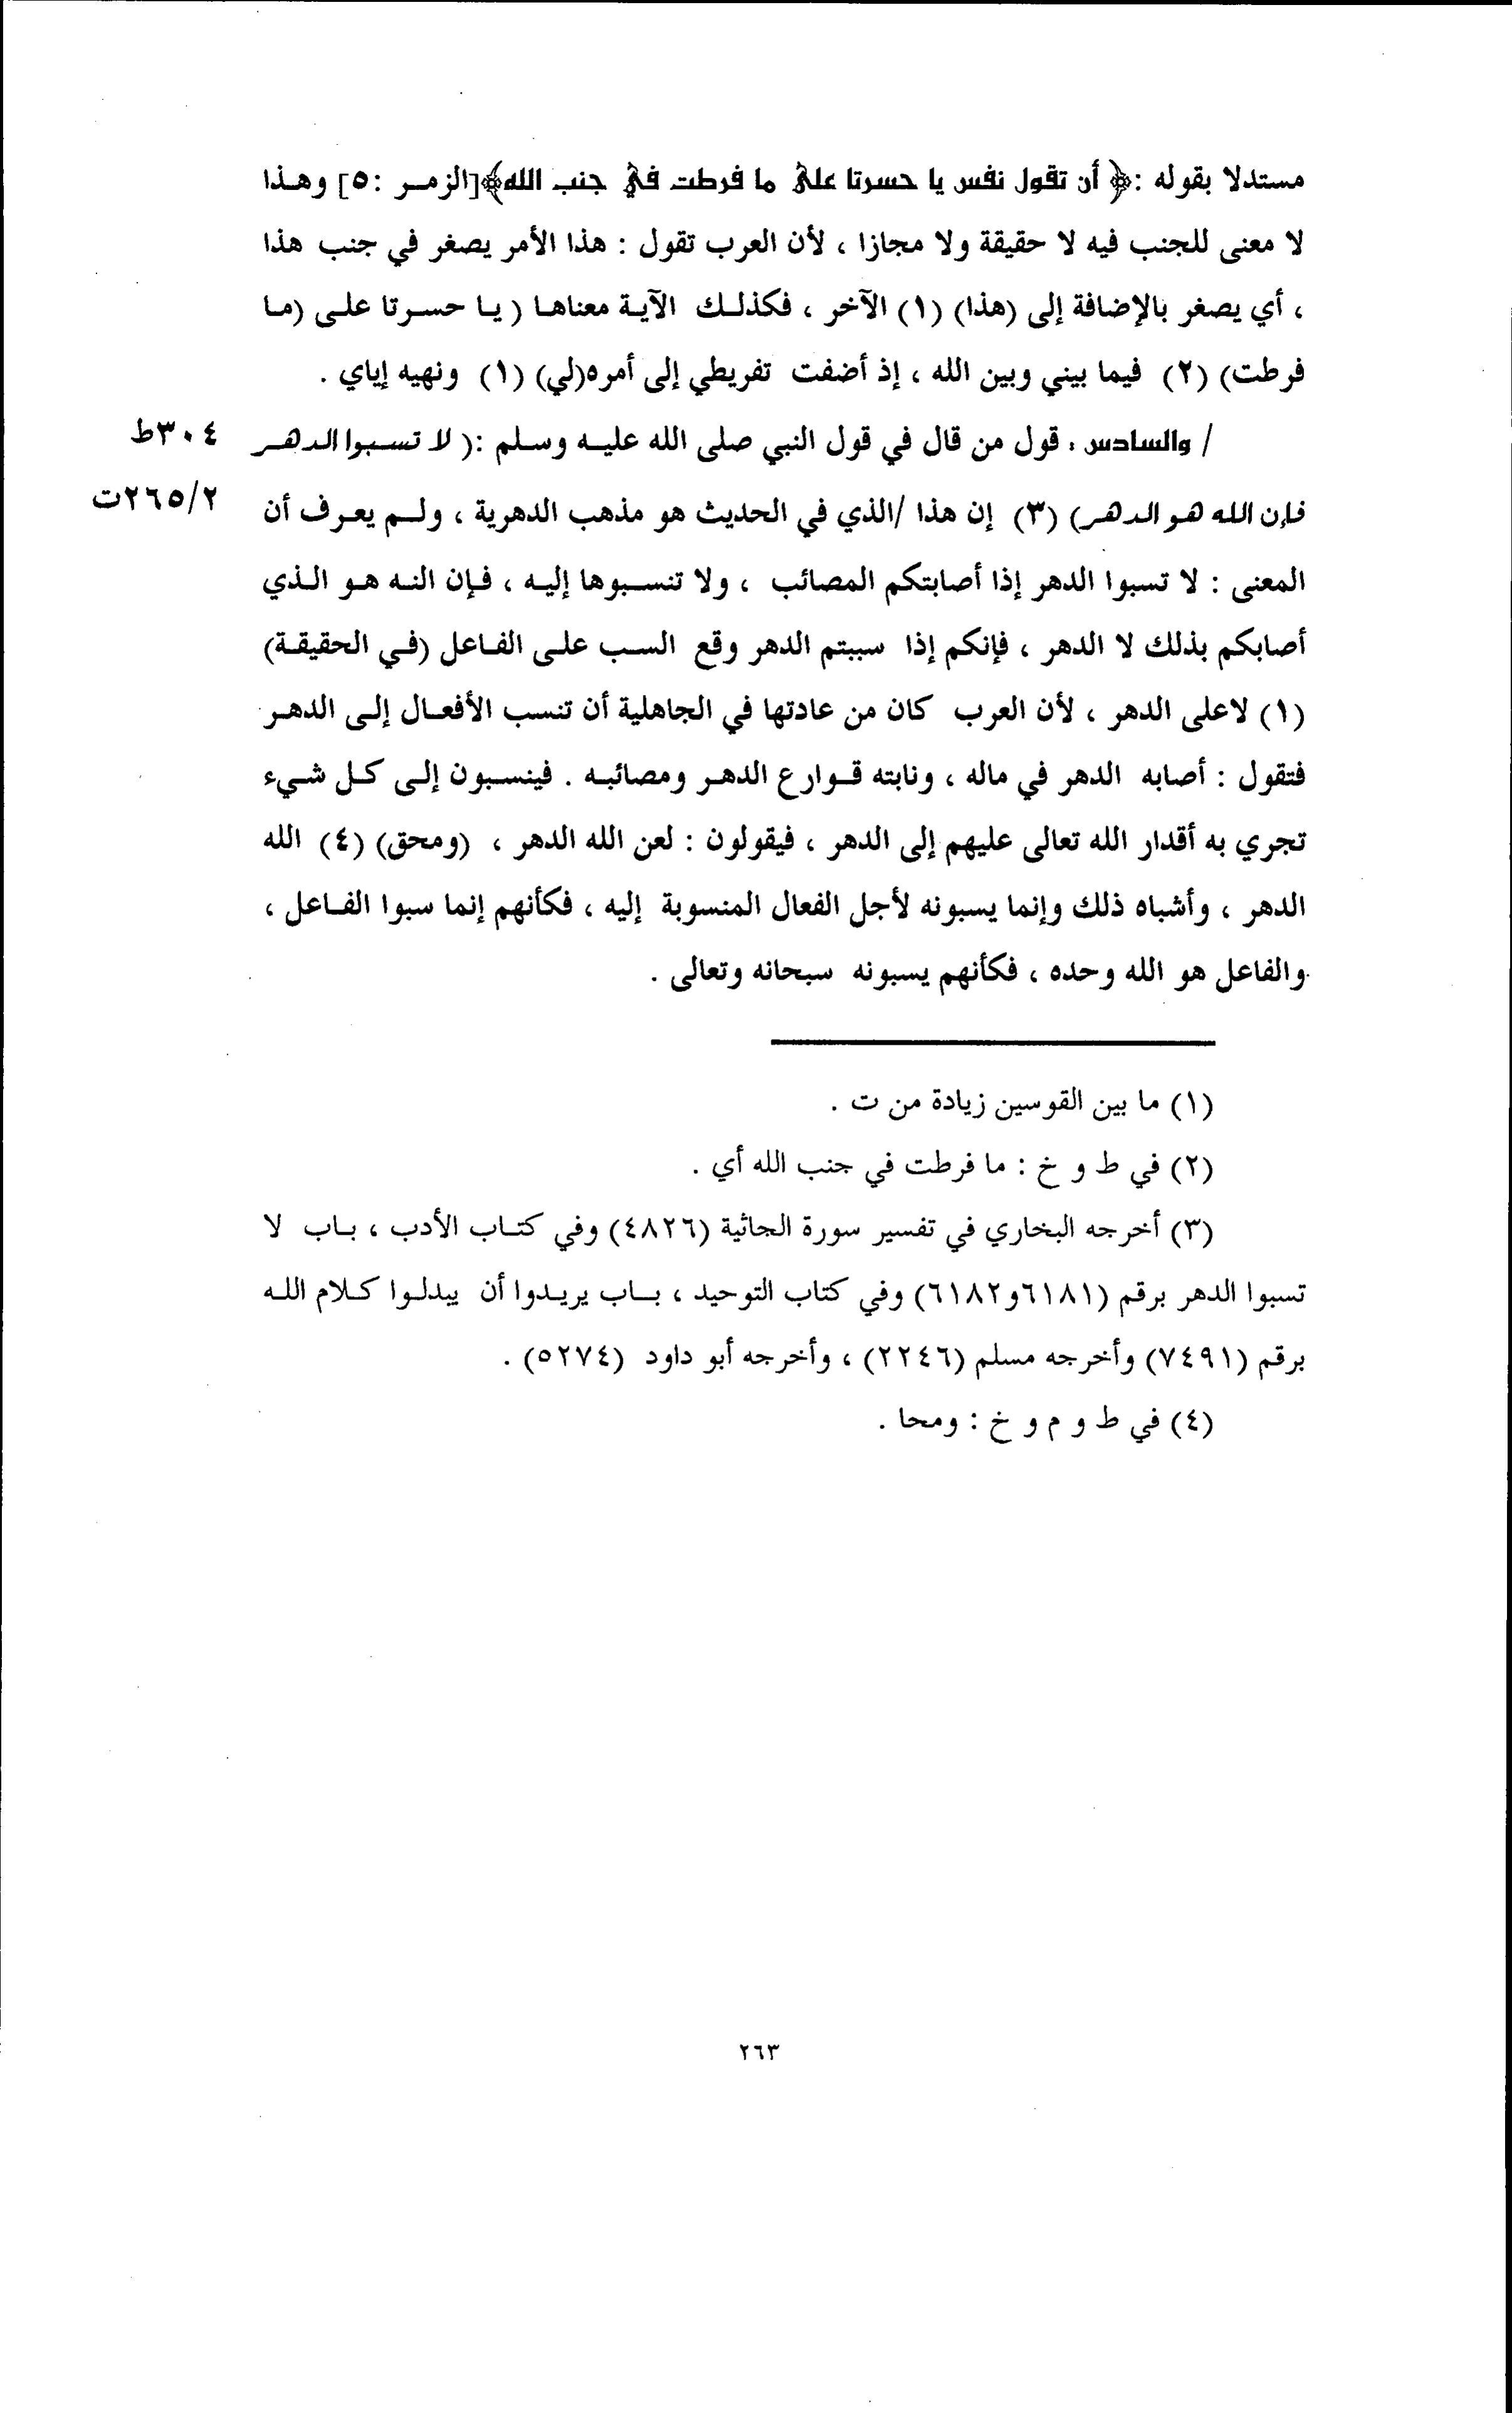 مستدلا بقوله :﴿ أن تقول نفس يا حسرتا على ما فرطت في جنب الله﴾[الزمر :٥] وهذا
لا معنى للجنب فيه لا حقيقة ولا مجازا ، لأن العرب تقول : هذا الأمر يصغر في جنب هذا
، أي يصغر بالإضافة إلى (هذا) (١) الآخر ، فكذلك الآية معناها ( يا حسرتا على (ما
فرطت) (٢) فيما بيني وبين الله ، إذ أضفت تفريطي إلى أمره(لي) (١) ونهيه إياي .
/ والسادس ، قول من قال في قول النبي صلى الله عليه وسلم :( لا تسبوا الدهر ٣٠٤ط
فإن الله هو الدهر) (٣) إن هذا /الذي في الحديث هو مذهب الدهرية ، ولم يعرف أن ٢٦٥/٢ت
المعنى : لا تسبوا الدهر إذا أصابتكم المصائب ، ولا تنسبوها إليه ، فإن النه هو الذي
أصابكم بذلك لا الدهر ، فإنكم إذا سببتم الدهر وقع السب على الفاعل (في الحقيقة)
(١) لاعلى الدهر ، لأن العرب كان من عادتها في الجاهلية أن تنسب الأفعال إلى الدهر
فتقول : أصابه الدهر في ماله ، ونابته قوارع الدهر ومصائبه . فينسبون إلى كل شيء
تجري به أقدار الله تعالى عليهم إلى الدهر ، فيقولون : لعن الله الدهر ، (ومحق) (٤) الله
الدهر ، وأشباه ذلك وإنما يسبونه لأجل الفعال المنسوبة إليه ، فكأنهم إنما سبوا الفاعل ،
والفاعل هو الله وحده ، فكأنهم يسبونه سبحانه وتعالى .
(١) ما بين القوسين زيادة من ت .
(٢) في ط و خ : ما فرطت في جنب الله أي .
(٣) أخرجه البخاري في تفسير سورة الجاثية (٤٨٢٦) وفي كتاب الأدب ، باب لا
تسبوا الدهر برقم (٦١٨١و٦١٨٢) وفي كتاب التوحيد ، باب يريدوا أن يبدلوا كلام الله
برقم (٧٤٩١) وأخرجه مسلم (٢٢٤٦) ، وأخرجه أبو داود (٥٢٧٤) .
(٤) في ط و م و خ : ومحا .
٢٦٣